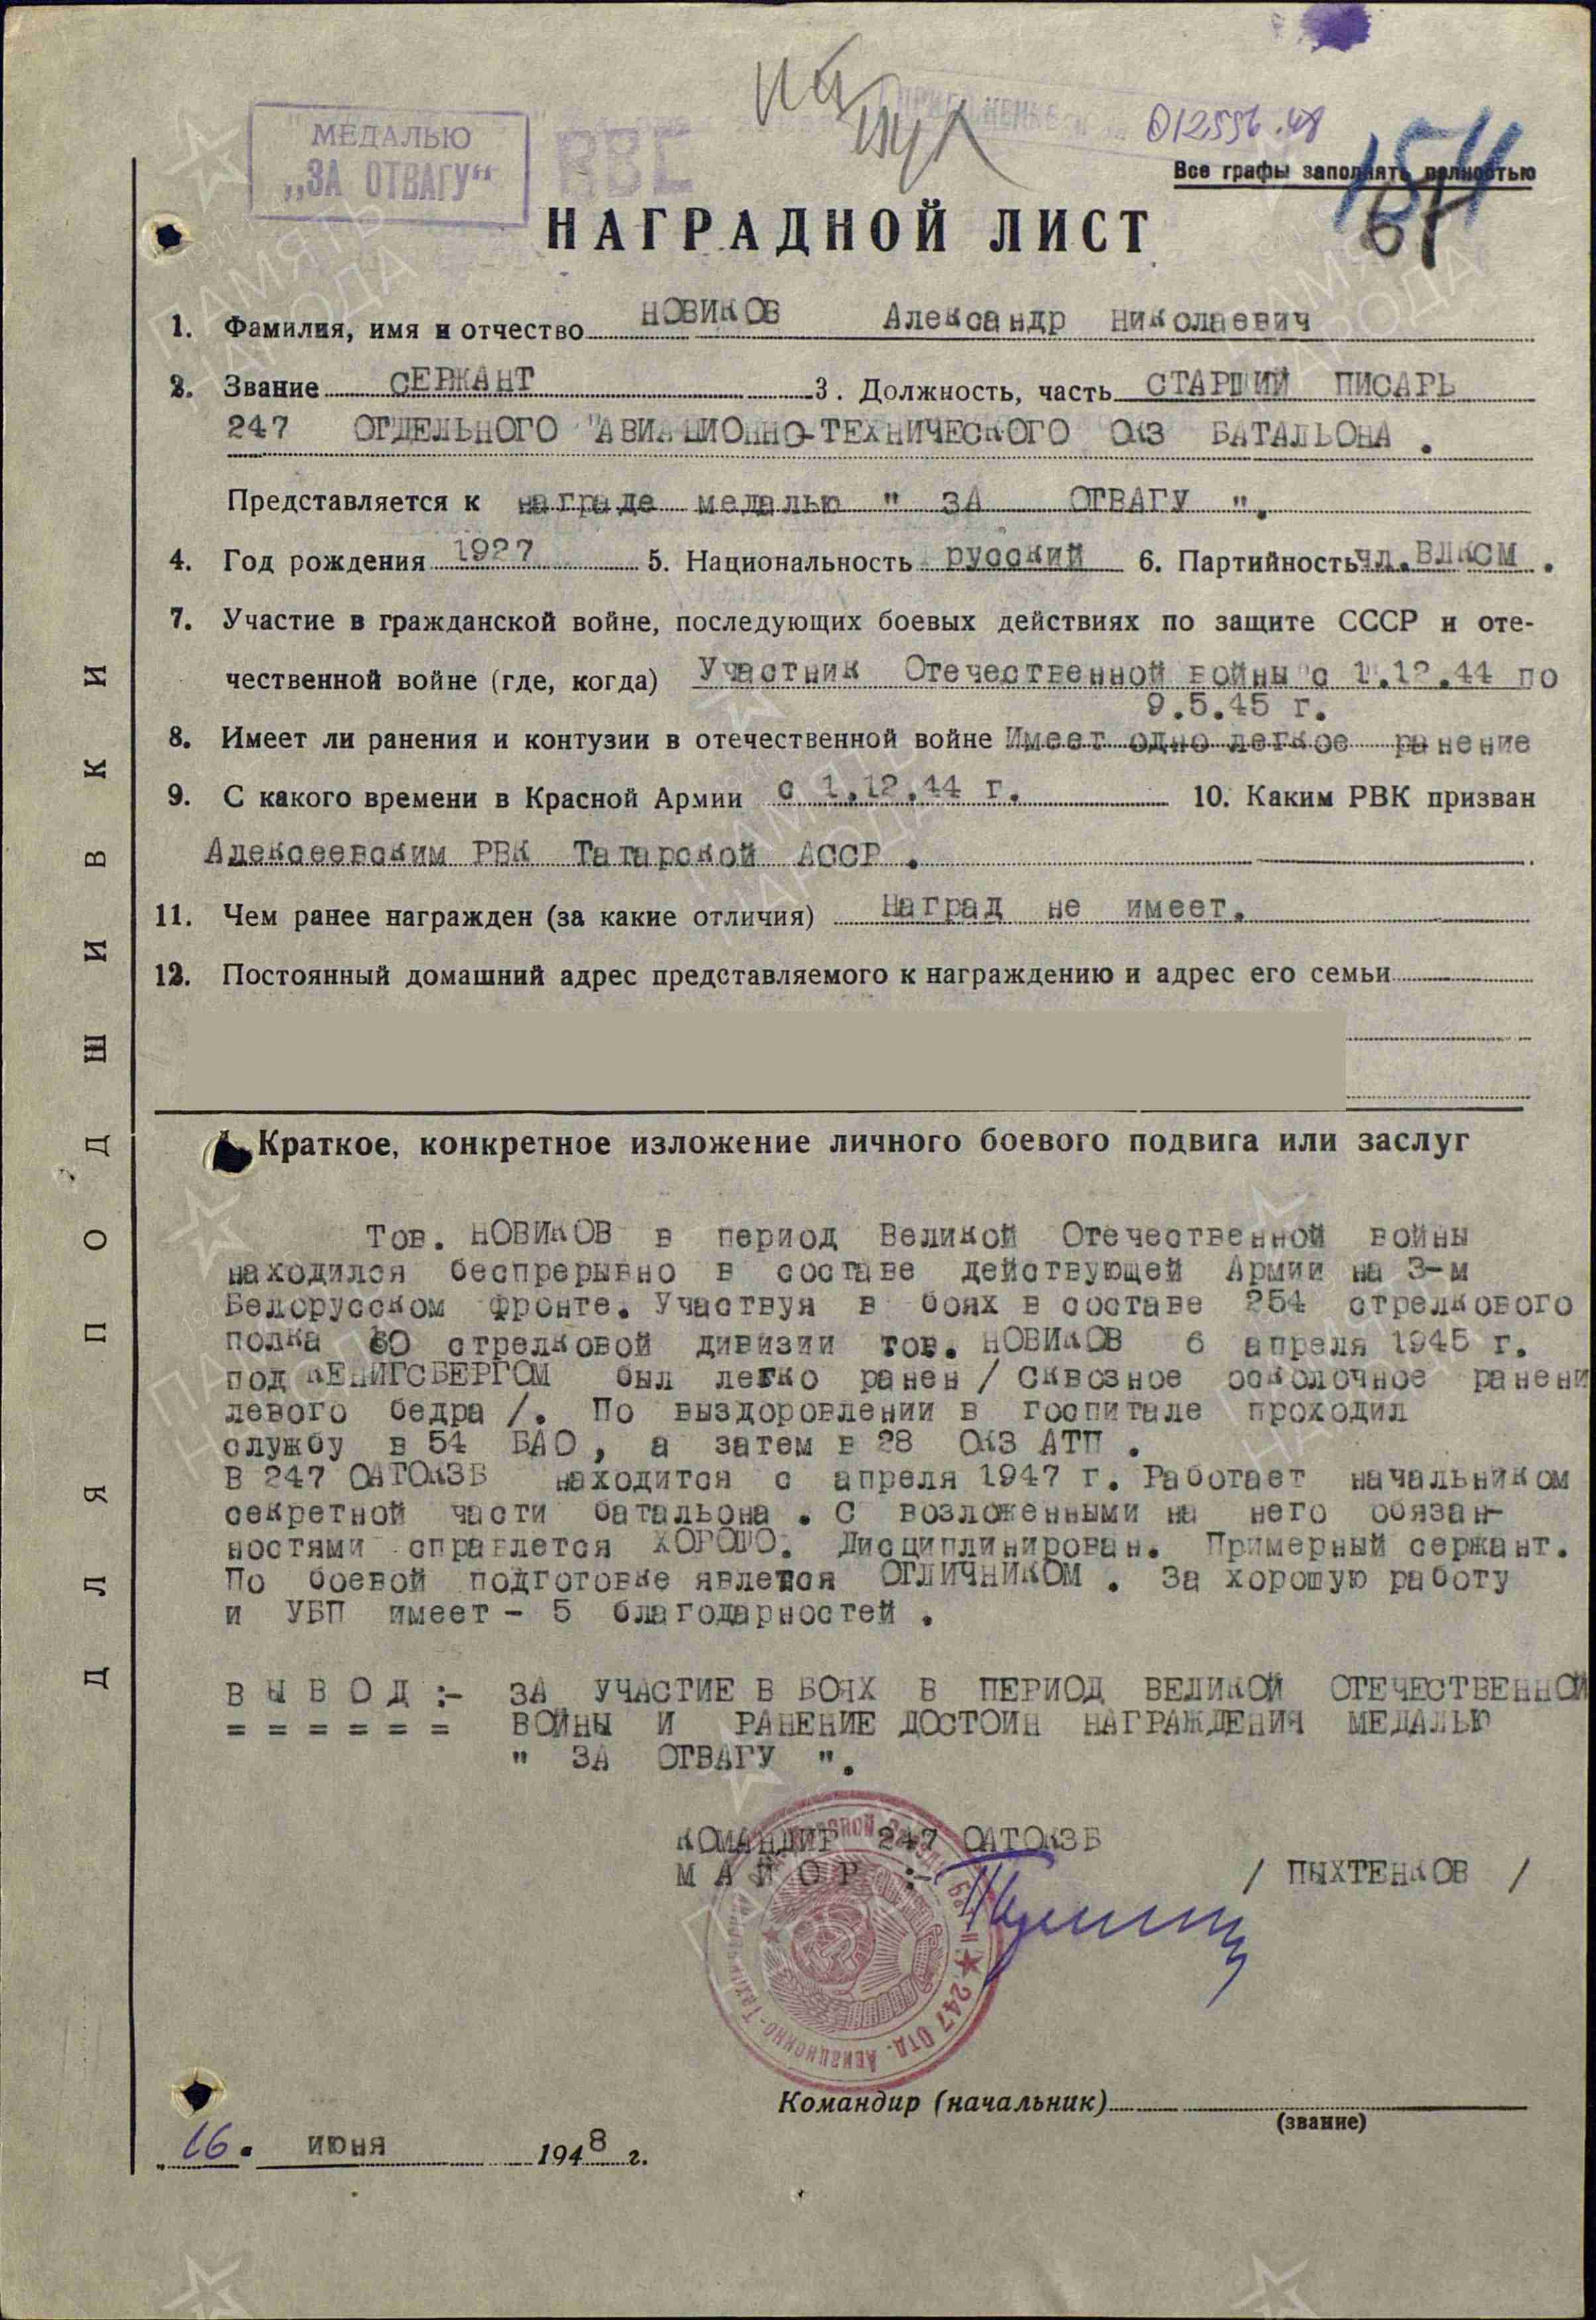 МЕДАЛЬЮ
„ЗА ОТВАГУ“
RBE
012556.48
Все графы заполнять полностью
НАГРАДНОЙ ЛИСТ
1. Фамилия, имя и отчество НОВИКОВ Александр Николаевич
2. Звание СЕРЖАНТ 3. Должность, часть СТАРШИЙ ПИСАРЬ
247 ОТДЕЛЬНОГО АВИАЦИОННО-ТЕХНИЧЕСКОГО ОКЗ БАТАЛЬОНА .
Представляется к награде медалью " ЗА ОТВАГУ ".
4. Год рождения 1927 5. Национальность русский 6. Партийность чл.ВЛКСМ .
7. Участие в гражданской войне, последующих боевых действиях по защите СССР и оте-
чественной войне (где, когда) Участник Отечественной войны с 1.12.44 по
9.5.45 г.
8. Имеет ли ранения и контузии в отечественной войне Имеет одно легкое ранение
9. С какого времени в Красной Армии с 1.12.44 г. 10. Каким РВК призван
Алексеевским РВК Татарской АССР .
11. Чем ранее награжден (за какие отличия) Наград не имеет.
12. Постоянный домашний адрес представляемого к награждению и адрес его семьи
Краткое, конкретное изложение личного боевого подвига или заслуг
Тов. НОВИКОВ в период Великой Отечественной войны
находился беспрерывно в составе действующей Армии на 3-м
Белорусском фронте. Участвуя в боях в составе 254 стрелкового
полка стрелковой дивизии тов. НОВИКОВ 6 апреля 1945 г.
под КЕНИГСБЕРГОМ был легко ранен / сквозное осколочное ранени
левого бедра /. По выздоровлении в госпитале проходил
службу в 54 БАО, а затем в 28 ОКЗ АТП .
В 247 ОАТОКЗБ находится с апреля 1947 г. Работает начальником
секретной части батальона . С возложенными на него обязан-
ностями справлется ХОРОШО. Дисциплинирован. Примерный сержант.
По боевой подготовке явлется ОТЛИЧНИКОМ . За хорошую работу
и УБП имеет - 5 благодарностей .
В Ы В О Д :- ЗА УЧАСТИЕ В БОЯХ В ПЕРИОД ВЕЛИКОЙ ОТЕЧЕСТВЕННОЙ
= = = = = = ВОЙНЫ И РАНЕНИЕ ДОСТОИН НАГРАЖДЕНИЯ МЕДАЛЬЮ
" ЗА ОТВАГУ ".
КОМАНДИР 247 ОАТОКЗБ
М А Й О Р :- / ПЫХТЕНКОВ /
247 Отд. Авиационно-
Командир (начальник)
(звание)
16. июня 1948 г.
ДЛЯ ПОДШИВКИ
ПАМЯТЬ НАРОДА